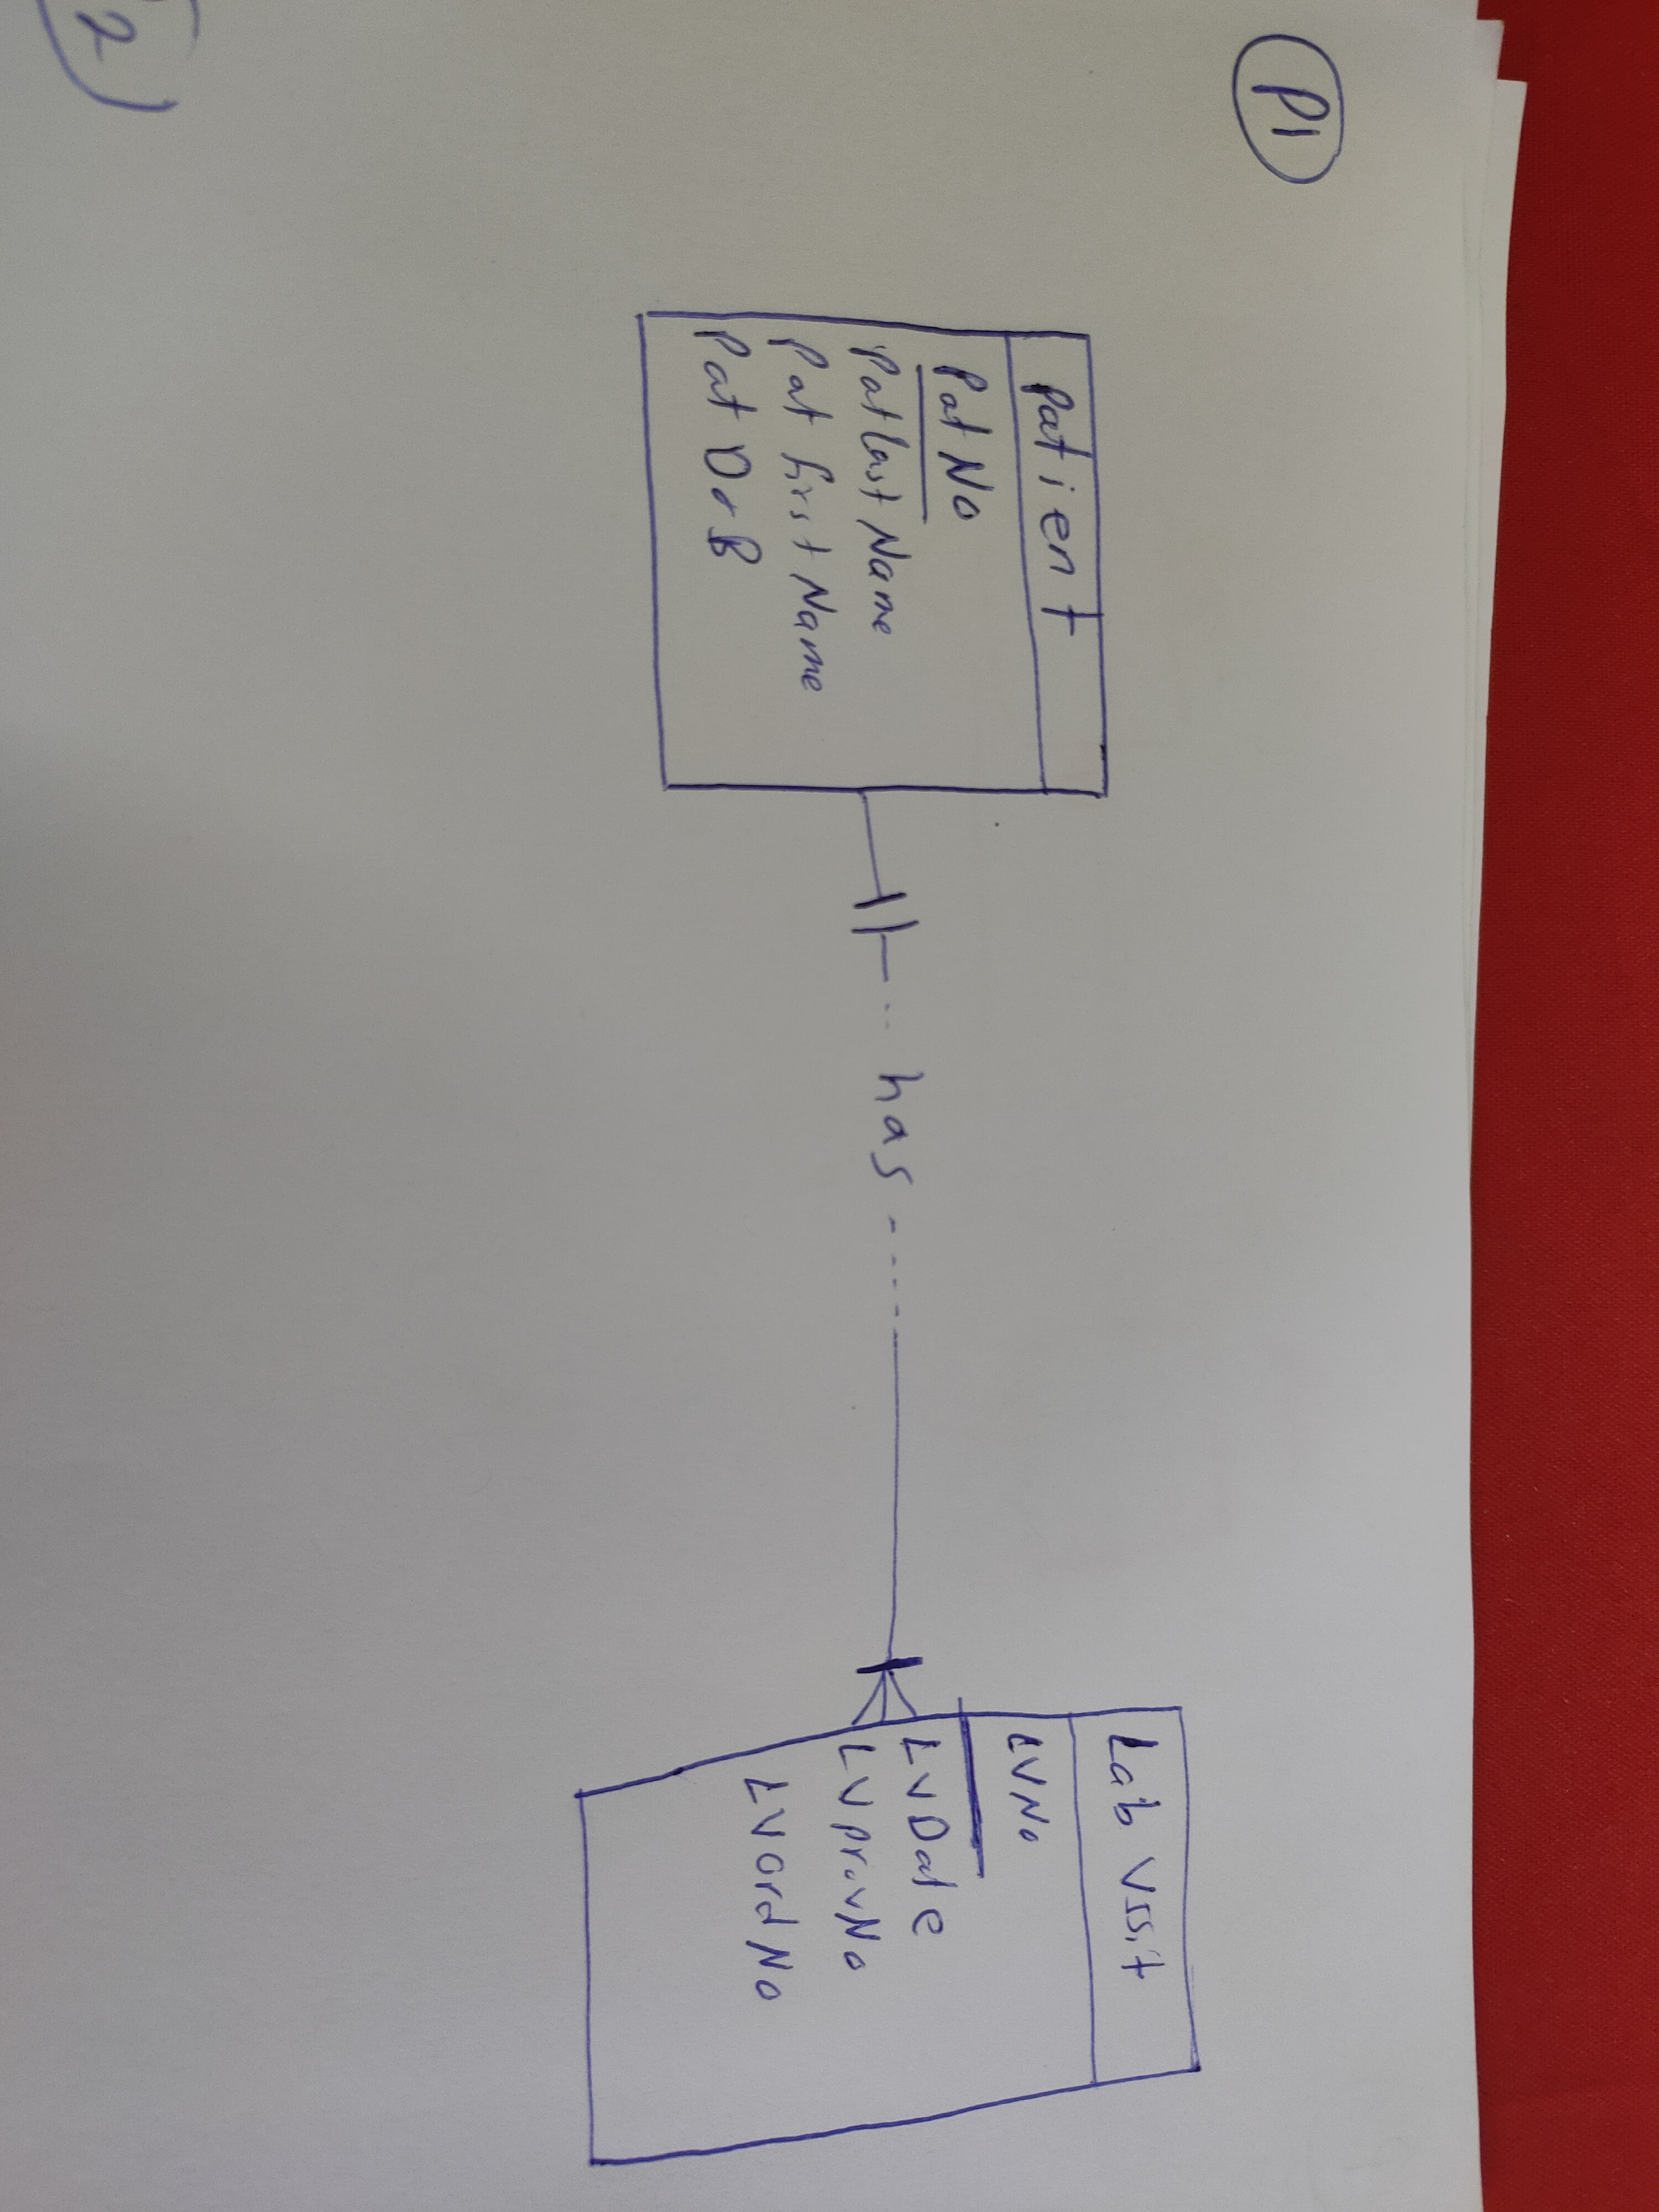 P1
Patient
PatNo
PatLastName
Pat first Name
Pat DoB
has
Lab Visit
LVNo
LVDate
LVProvNo
LVOrdNo
2